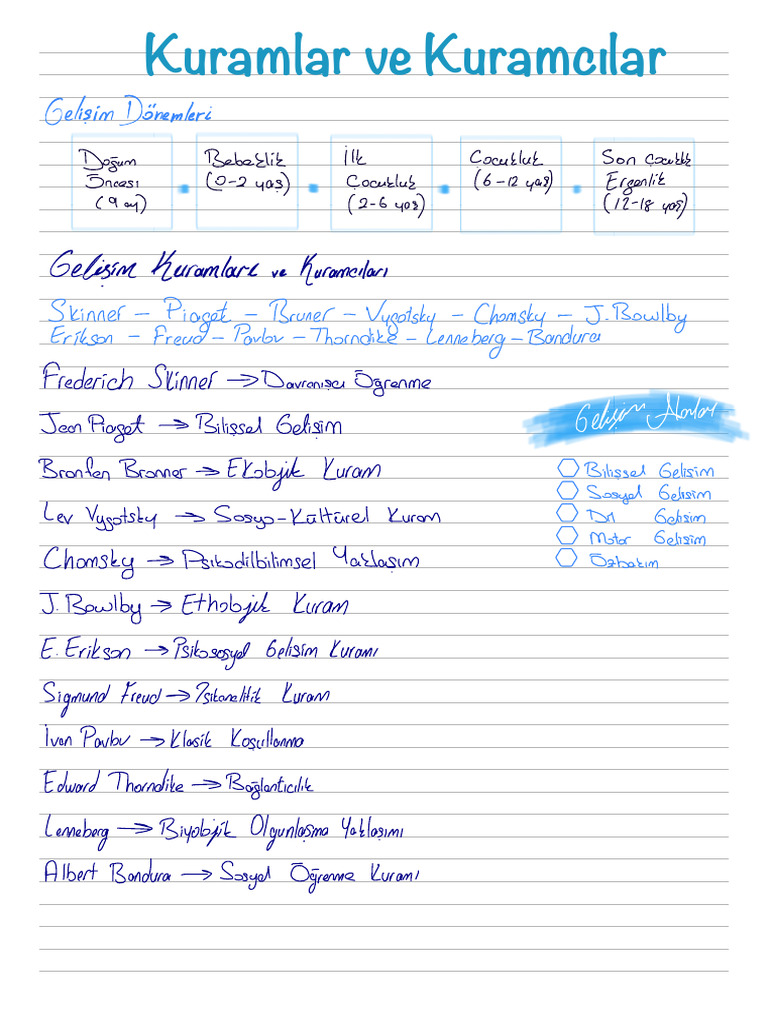 Kuramlar ve Kuramcılar
Gelişim Dönemleri
Doğum Öncesi (9 ay)
Bebeklik (0-2 yaş)
İlk Çocukluk (2-6 yaş)
Çocukluk (6-12 yaş)
Son Çocukluk Ergenlik (12-18 yaş)
Gelişim Kuramları ve Kuramcıları
Skinner - Piaget - Bruner - Vygotsky - Chomsky - J. Bowlby
Erikson - Freud - Pavlov - Thorndike - Lenneberg - Bandura
Frederich Skinner → Davranışçı Öğrenme
Jean Piaget → Bilişsel Gelişim
Bronfen Bronner → Ekolojik Kuram
Lev Vygotsky → Sosyo-Kültürel Kuram
Chomsky → Psikodilbilimsel Yaklaşım
J. Bowlby → Etholojik Kuram
E. Erikson → Psikososyal Gelişim Kuramı
Sigmund Freud → Psikanalitik Kuram
İvan Pavlov → Klasik Koşullanma
Edward Thorndike → Bağlantıcılık
Lenneberg → Biyolojik Olgunlaşma Yaklaşımı
Albert Bandura → Sosyal Öğrenme Kuramı
Gelişim Alanları
Bilişsel Gelişim
Sosyal Gelişim
Dil Gelişim
Motor Gelişim
Özbakım